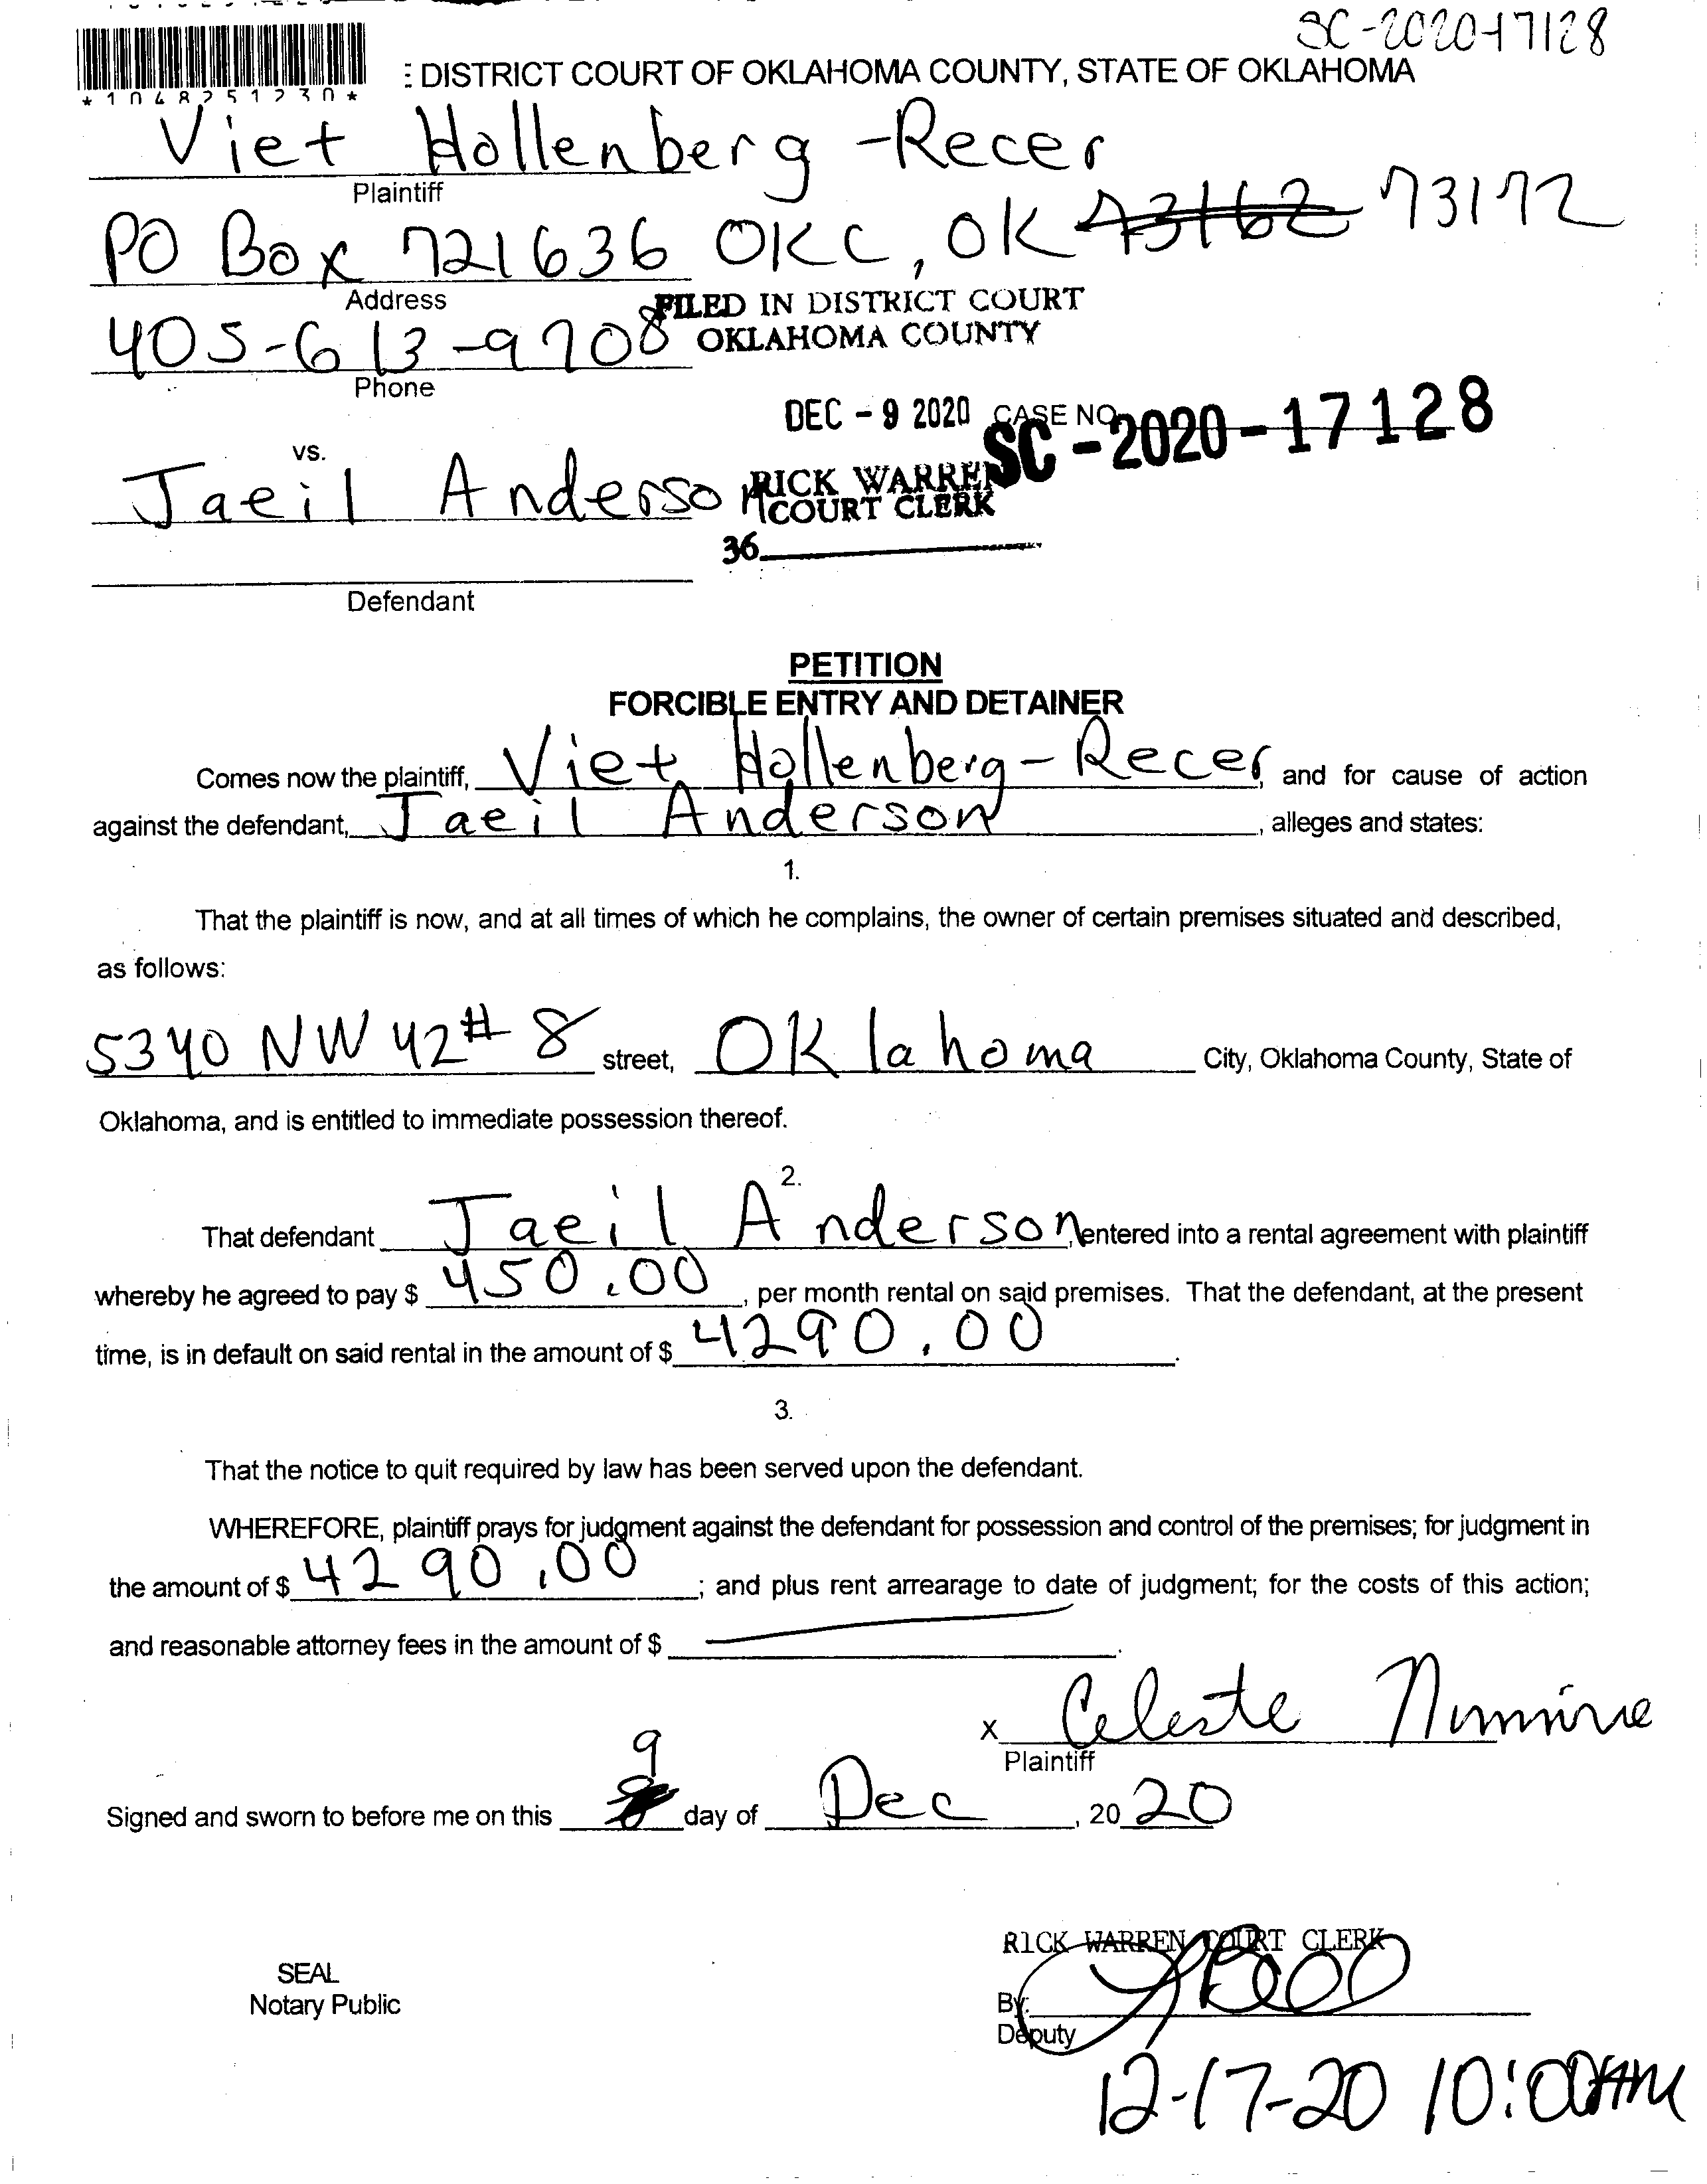 SC-2020-17128
: DISTRICT COURT OF OKLAHOMA COUNTY, STATE OF OKLAHOMA
*1048251230*
Viet Hollenberg-Recer
Plaintiff
PO Box 721636 OKC, OK 73162 73172
Address
FILED IN DISTRICT COURT
OKLAHOMA COUNTY
405-613-9708
Phone
DEC - 9 2020 CASE NO.
SC-2020-17128
vs.
Jaeil Anderson
RICK WARREN
COURT CLERK
36
Defendant
PETITION
FORCIBLE ENTRY AND DETAINER
Comes now the plaintiff, Viet Hollenberg-Recer, and for cause of action
against the defendant, Jaeil Anderson, alleges and states:
1.
That the plaintiff is now, and at all times of which he complains, the owner of certain premises situated and described,
as follows:
5340 NW 42 # 8 street, Oklahoma City, Oklahoma County, State of
Oklahoma, and is entitled to immediate possession thereof.
2.
That defendant Jaeil Anderson, entered into a rental agreement with plaintiff
whereby he agreed to pay $ 450.00, per month rental on said premises. That the defendant, at the present
time, is in default on said rental in the amount of $ 4290.00.
3.
That the notice to quit required by law has been served upon the defendant.
WHEREFORE, plaintiff prays for judgment against the defendant for possession and control of the premises; for judgment in
the amount of $ 4290.00; and plus rent arrearage to date of judgment; for the costs of this action;
and reasonable attorney fees in the amount of $.
x Celeste
Plaintiff
9
Signed and sworn to before me on this day of Dec, 20 20
RICK WARREN COURT CLERK
SEAL
Notary Public
By:
Deputy
12-17-20 10:00AM